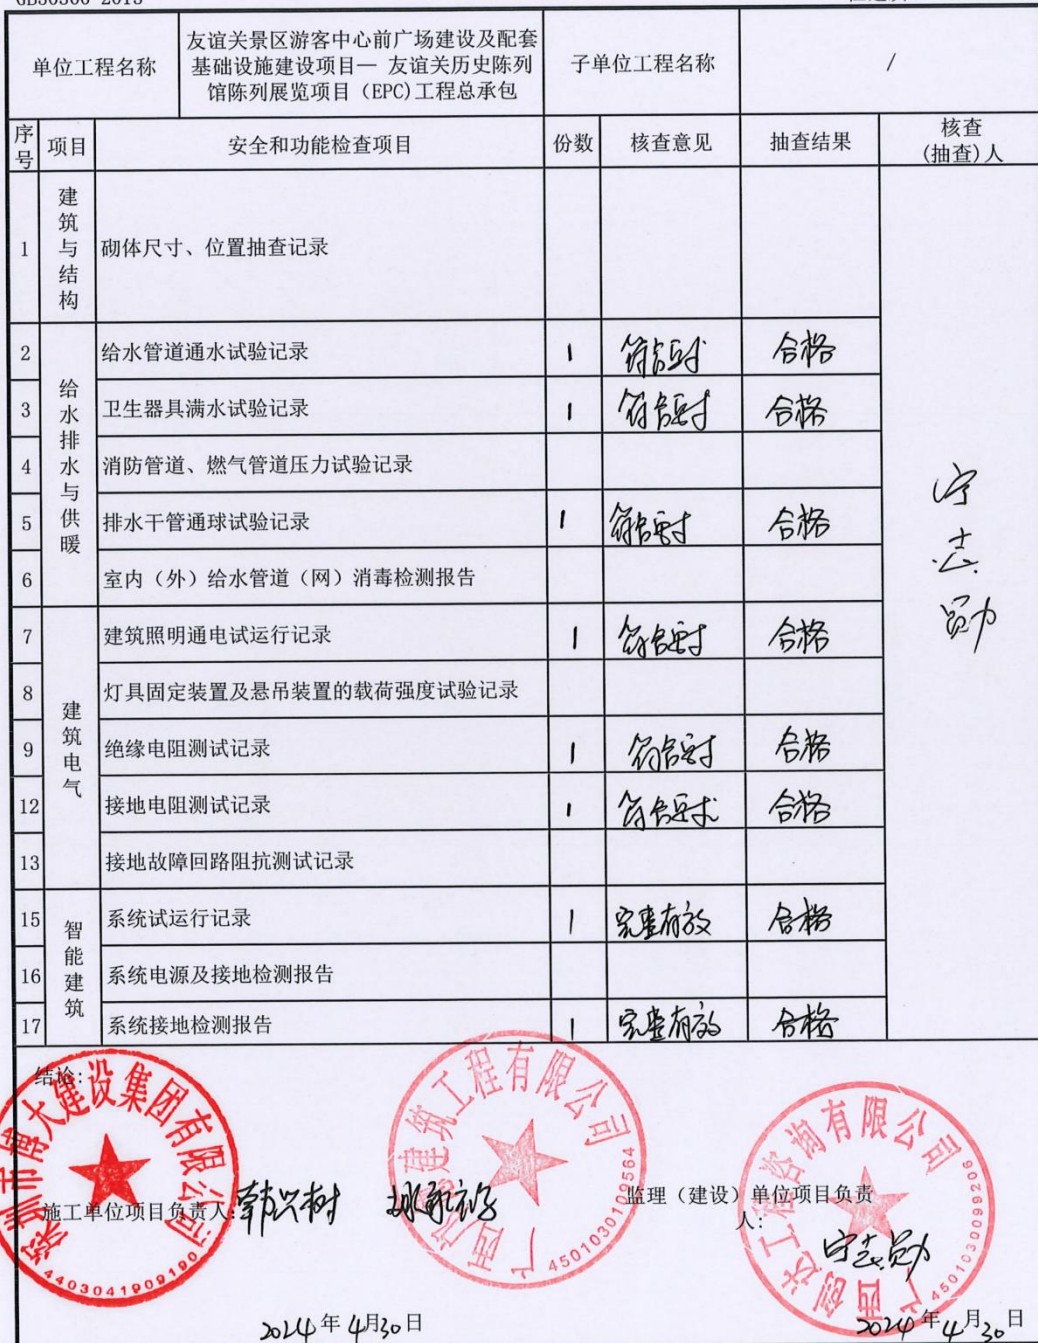 单位工程名称
友谊关景区游客中心前广场建设及配套
基础设施建设项目— 友谊关历史陈列
馆陈列展览项目（EPC)工程总承包
子单位工程名称
/
序号 项目 安全和功能检查项目 份数 核查意见 抽查结果 核查(抽查)人
建筑与结构
1 砌体尺寸、位置抽查记录
给水排水与供暖
2 给水管道通水试验记录 1 符合要求 合格
3 卫生器具满水试验记录 1 符合要求 合格
4 消防管道、燃气管道压力试验记录
5 排水干管通球试验记录 1 符合要求 合格
6 室内（外）给水管道（网）消毒检测报告
宁志勋
建筑电气
7 建筑照明通电试运行记录 1 符合要求 合格
8 灯具固定装置及悬吊装置的载荷强度试验记录
9 绝缘电阻测试记录 1 符合要求 合格
12 接地电阻测试记录 1 符合要求 合格
13 接地故障回路阻抗测试记录
智能建筑
15 系统试运行记录 1 完整有效 合格
16 系统电源及接地检测报告
17 系统接地检测报告 1 完整有效 合格
结论:
大建设集团有限公司
4403041909190
建筑工程有限公司
4501030109564
广西创达工程咨询有限公司
施工单位项目负责人: 韩兴树
监理（建设）单位项目负责
人:
宁志勋
2024年4月30日
2024年4月30日